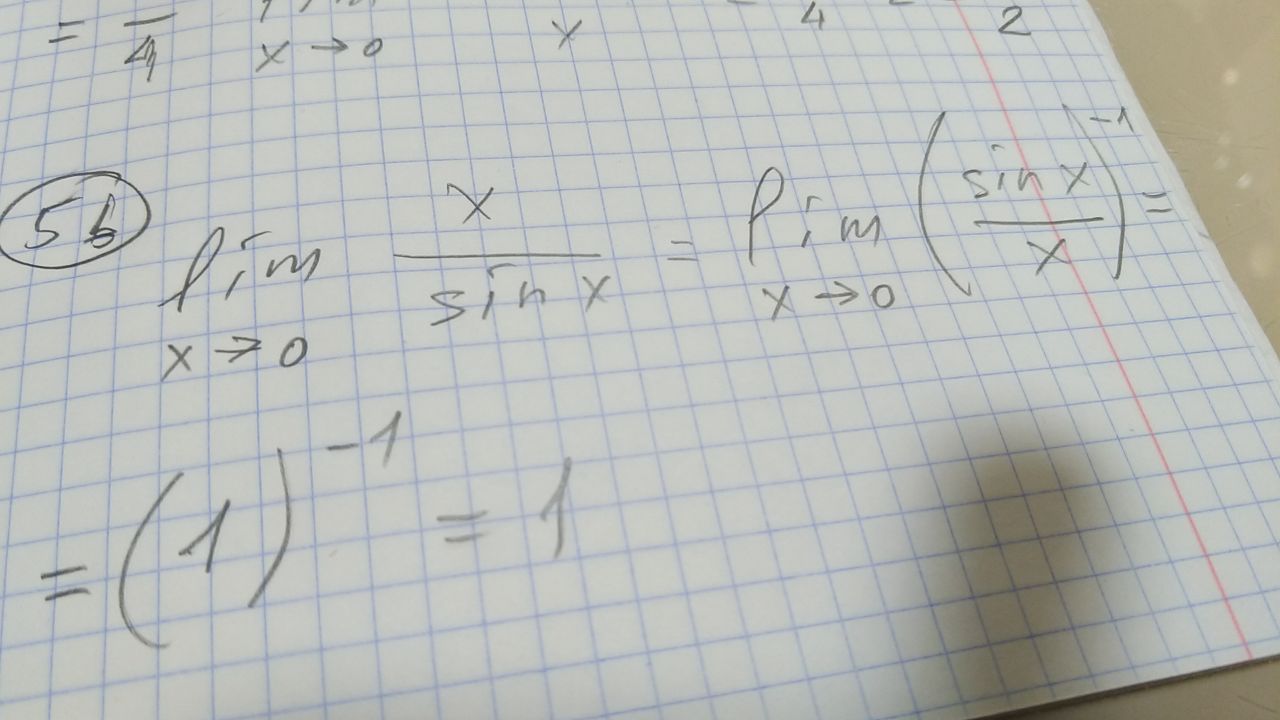 = — 4 lim x→0 x = 4 = 2
5b lim x→0 x / sin x = lim x→0 (sin x / x)^-1 =
= (1)^-1 = 1